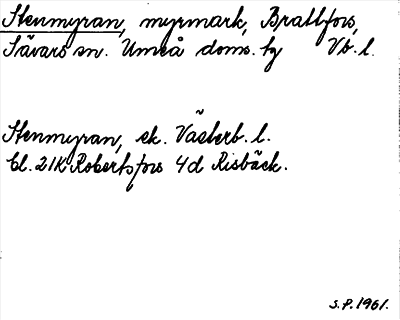 Stenmyran, myrmark, Brattfors,
Sävars sn. Umeå doms. hg Vb. l.
Stenmyran, ek. Västerb. l.
Bl. 21K Robertsfors 4d Risbäck.
S.P. 1961.